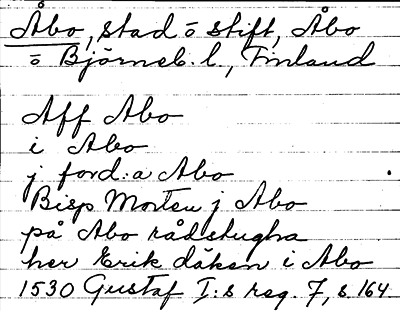 Åbo, stad o stift, Åbo
o Björneb. l., Finland
Aff Abo
i Abo
j ford:a Abo
Bisp Morten j Abo
på Abo rådstugha
her Erik däken i Abo
1530 Gustaf I:s reg. 7, s. 164.